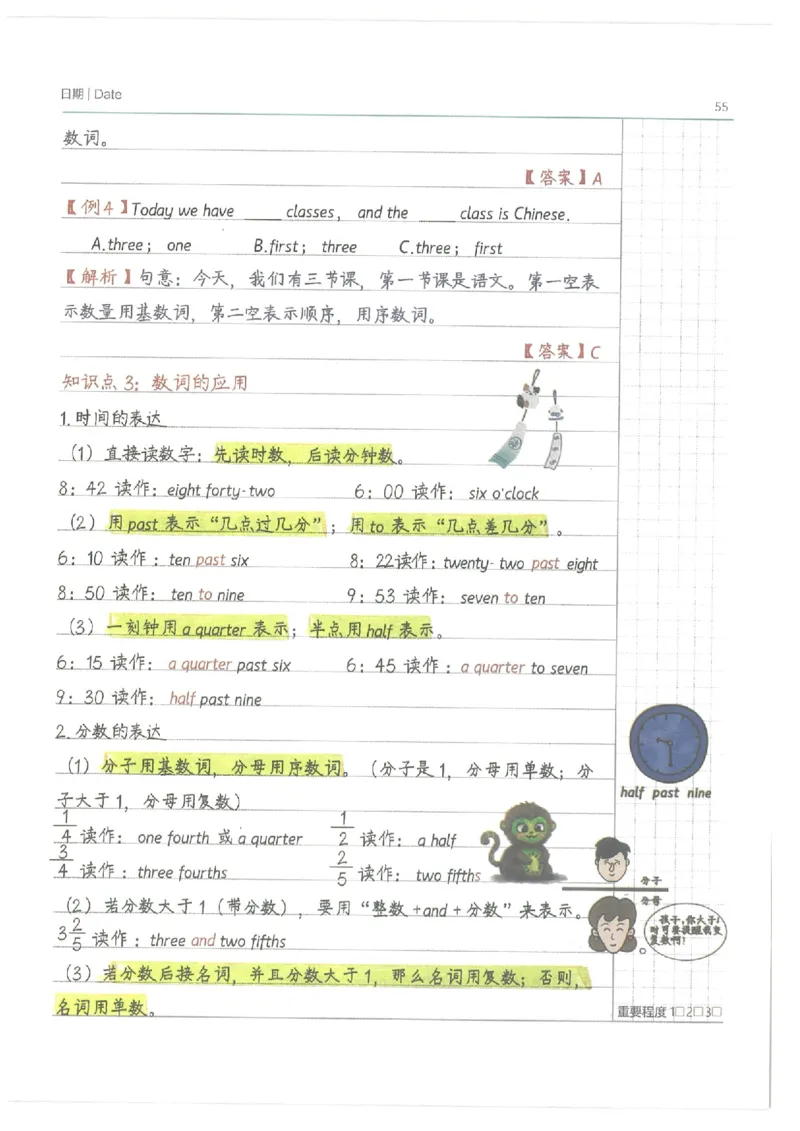 日期 | Date
55
数词。
【答案】A
【例4】Today we have _____ classes, and the _____ class is Chinese.
A.three; one B.first; three C.three; first
【解析】句意：今天，我们有三节课，第一节课是语文。第一空表
示数量用基数词，第二空表示顺序，用序数词。
【答案】C
知识点 3：数词的应用
1.时间的表达
（1）直接读数字：先读时数，后读分钟数。
8：42 读作：eight forty-two 6：00 读作：six o'clock
（2）用past 表示“几点过几分”；用to 表示“几点差几分”。
6：10 读作：ten past six 8：22读作：twenty-two past eight
8：50 读作：ten to nine 9：53 读作：seven to ten
（3）一刻钟用a quarter 表示；半点用half 表示。
6：15 读作：a quarter past six 6：45 读作：a quarter to seven
9：30 读作：half past nine
2.分数的表达
（1）分子用基数词，分母用序数词。（分子是1，分母用单数；分
half past nine
子大于1，分母用复数）
1/4 读作：one fourth 或 a quarter 1/2 读作：a half
3/4 读作：three fourths 2/5 读作：two fifths
分子
分母
（2）若分数大于1（带分数），要用“整数+and+分数”来表示。
孩子，你大于1
时可要提醒我变
复数啊！
3 2/5 读作：three and two fifths
（3）若分数后接名词，并且分数大于1，那么名词用复数；否则，
名词用单数。
重要程度 1□2□3□